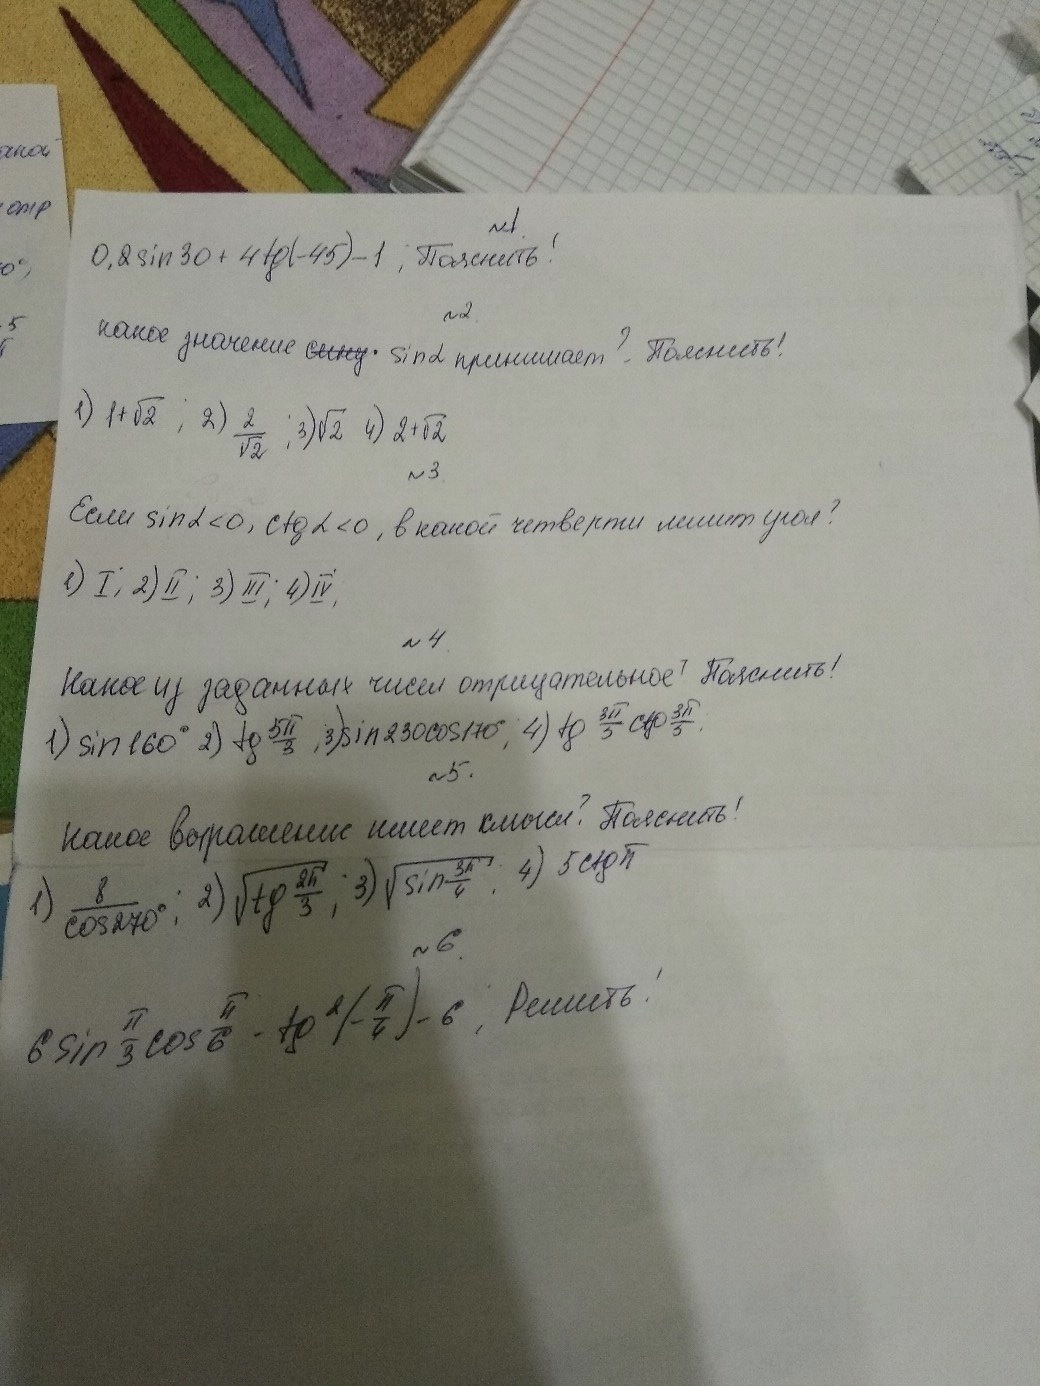 №1
0,2sin30+4tg(-45)-1; Пояснить!
№2
какое значение sinα принимает? Пояснить!
1) 1+√2; 2) 2/√2; 3)√2 4) 2+√2
№3
Если sinα<0, ctgα<0, в какой четверти лежит угол?
1) I; 2) II; 3) III; 4) IV;
№4
Какое из заданных чисел отрицательное? Пояснить!
1) sin160° 2) tg 5π/3; 3) sin230cos170°; 4) tg 3π/5 ctg 3π/5.
№5.
Какое выражение имеет смысл? Пояснить!
1) 8/cos270°; 2) √tg 2π/3; 3) √sin 3π/4; 4) 5ctgπ
№6.
6sin π/3 cos π/6 - tg²(-π/4)-6; Решить!